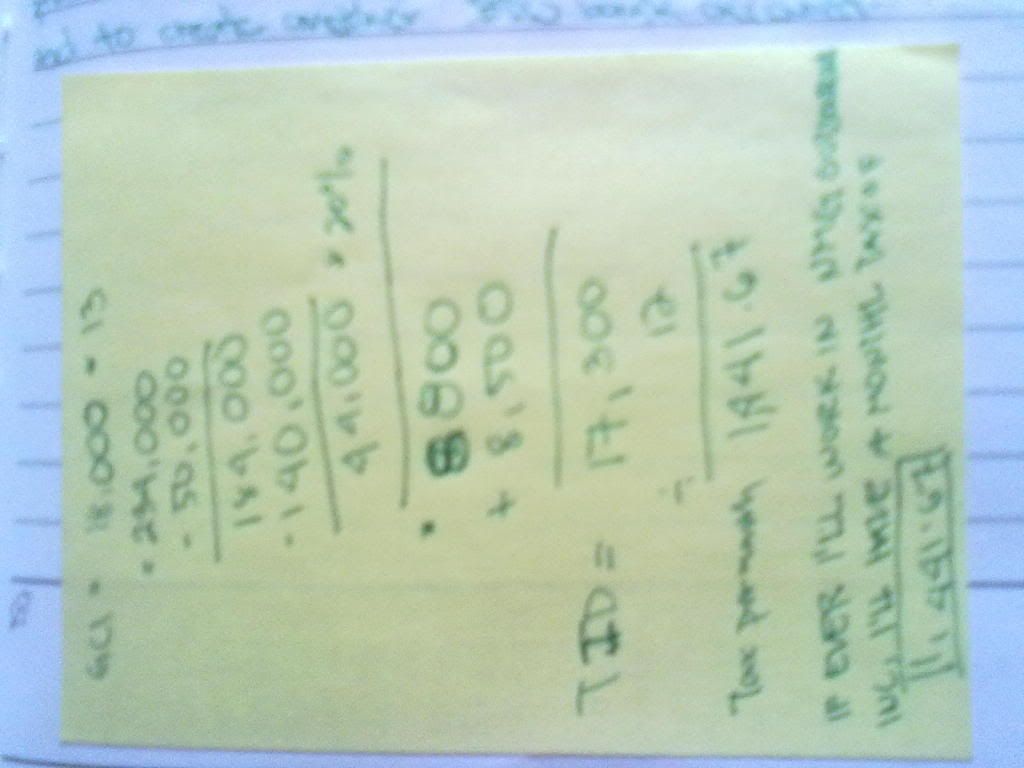 GCI = 18,000 × 13
= 234,000
- 50,000
184,000
- 140,000
44,000 × 20%
= 8800
+ 8,500
TID = 17,300
÷ 12
Tax per month 1441.67
IF EVER I'LL WORK IN
INC, I'LL HAVE A MONTHLY TAX OF
1,441.67
to create another bank account